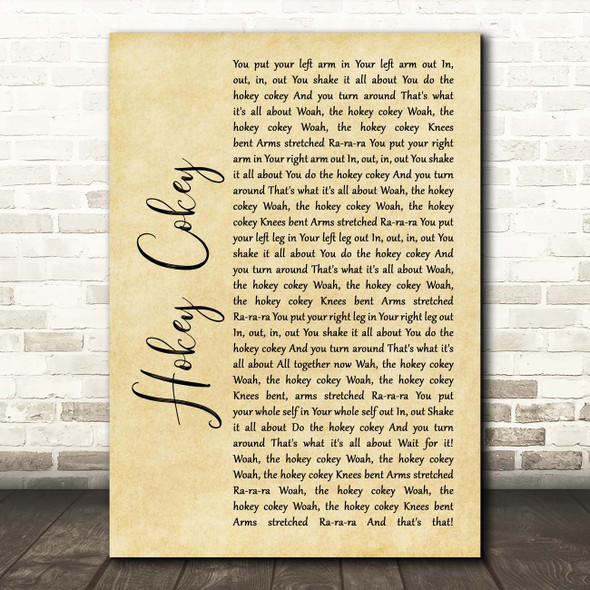 Hokey Cokey
You put your left arm in Your left arm out In,
out, in, out You shake it all about You do the
hokey cokey And you turn around That's what
it's all about Woah, the hokey cokey Woah, the
hokey cokey Woah, the hokey cokey Knees
bent Arms stretched Ra-ra-ra You put your right
arm in Your right arm out In, out, in, out You shake
it all about You do the hokey cokey And you turn
around That's what it's all about Woah, the hokey
cokey Woah, the hokey cokey Woah, the hokey
cokey Knees bent Arms stretched Ra-ra-ra You put
your left leg in Your left leg out In, out, in, out You
shake it all about You do the hokey cokey And
you turn around That's what it's all about Woah,
the hokey cokey Woah, the hokey cokey Woah,
the hokey cokey Knees bent Arms stretched
Ra-ra-ra You put your right leg in Your right leg out
In, out, in, out You shake it all about You do the
hokey cokey And you turn around That's what it's
all about All together now Wah, the hokey cokey
Woah, the hokey cokey Woah, the hokey cokey
Knees bent, arms stretched Ra-ra-ra You put
your whole self in Your whole self out In, out Shake
it all about Do the hokey cokey And you turn
around That's what it's all about Wait for it!
Woah, the hokey cokey Woah, the hokey cokey
Woah, the hokey cokey Knees bent Arms stretched
Ra-ra-ra Woah, the hokey cokey Woah, the
hokey cokey Woah, the hokey cokey Knees bent
Arms stretched Ra-ra-ra And that's that!